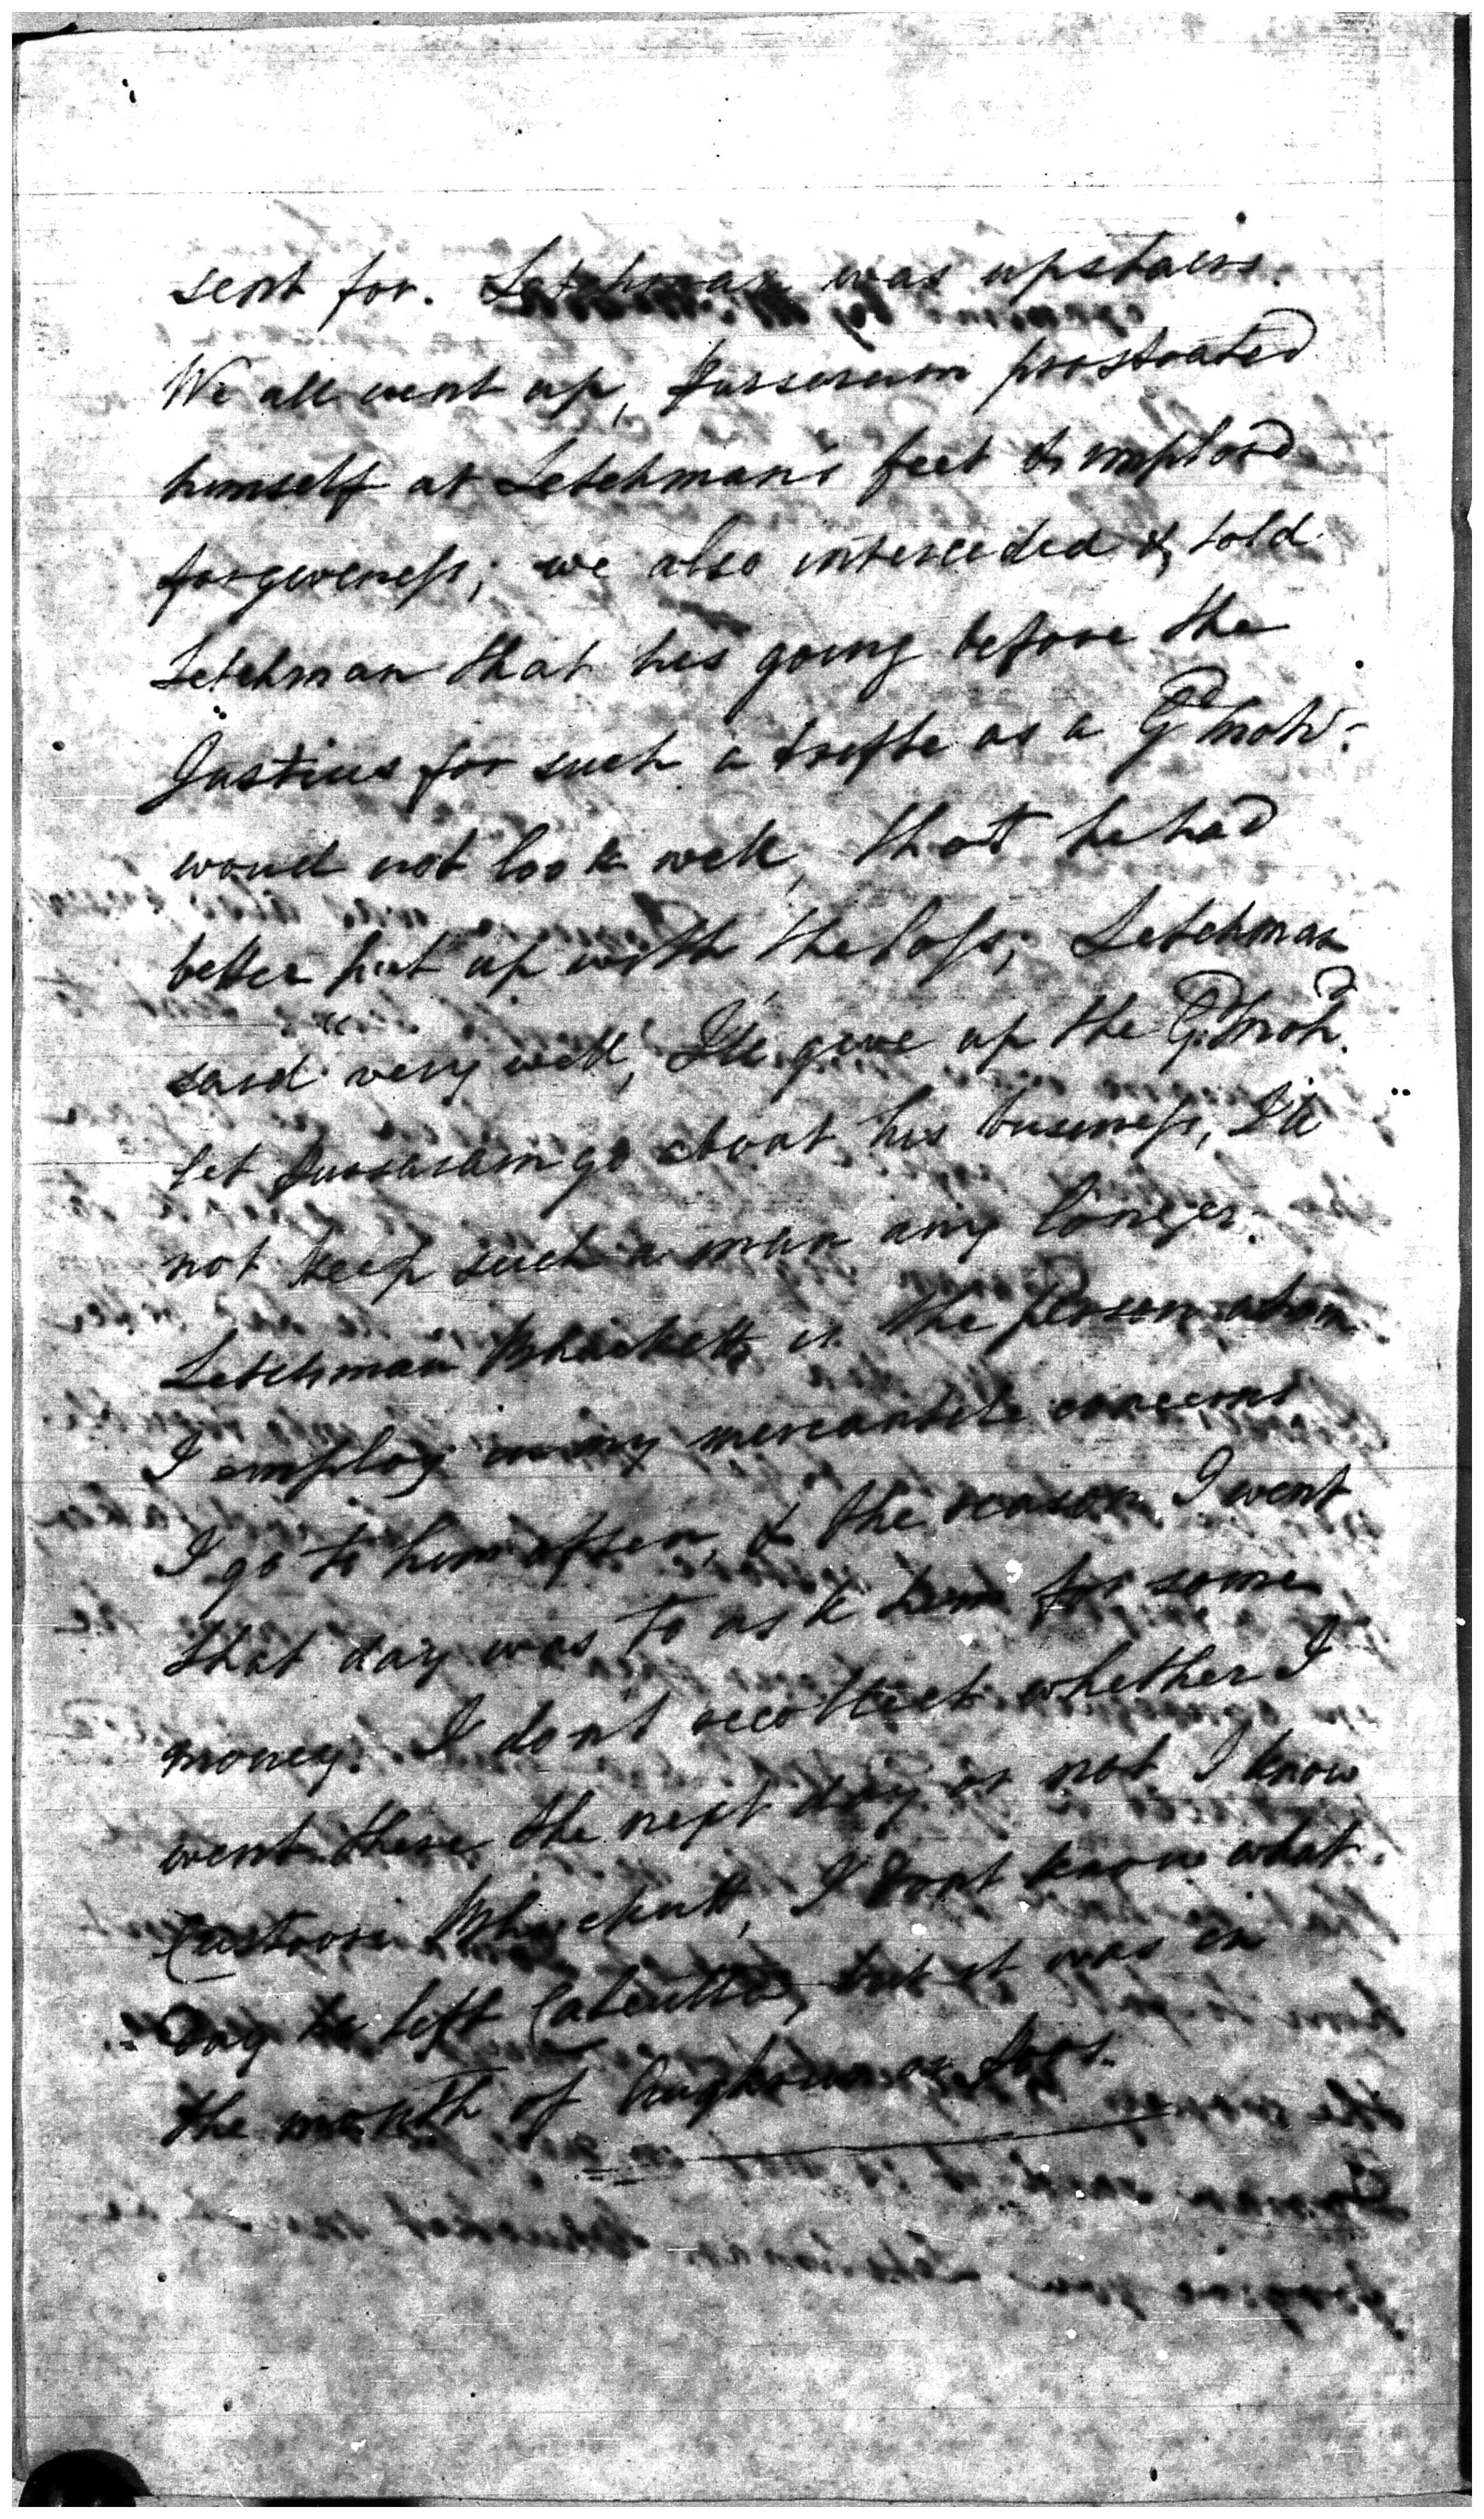 sent for. Letchman was upstairs.
We all went up, Pursaram prostrated
himself at Letchman's feet & implor'd
forgiveness; we also interceded & told
Letchman that his going before the
Justices for such a trifle as a Gd Mohr.
woud not look well, that he had
better put up with the loss, Letchman
said "very well, I'll give up the Gd Mohr.
let Pursaram go about his business, I'll
not keep such a man any longer.
Letchman Bhuckett is the person whom
I employ in my mercantile concerns
I go to him often, & the reason I went
that day was to ask him for some
money. I don't recollect whether I
went there the next day or not I know
Custoora Bhuckutt, I dont know what
day he left Calcutta, but it was in
the month of Aughun or Poos.